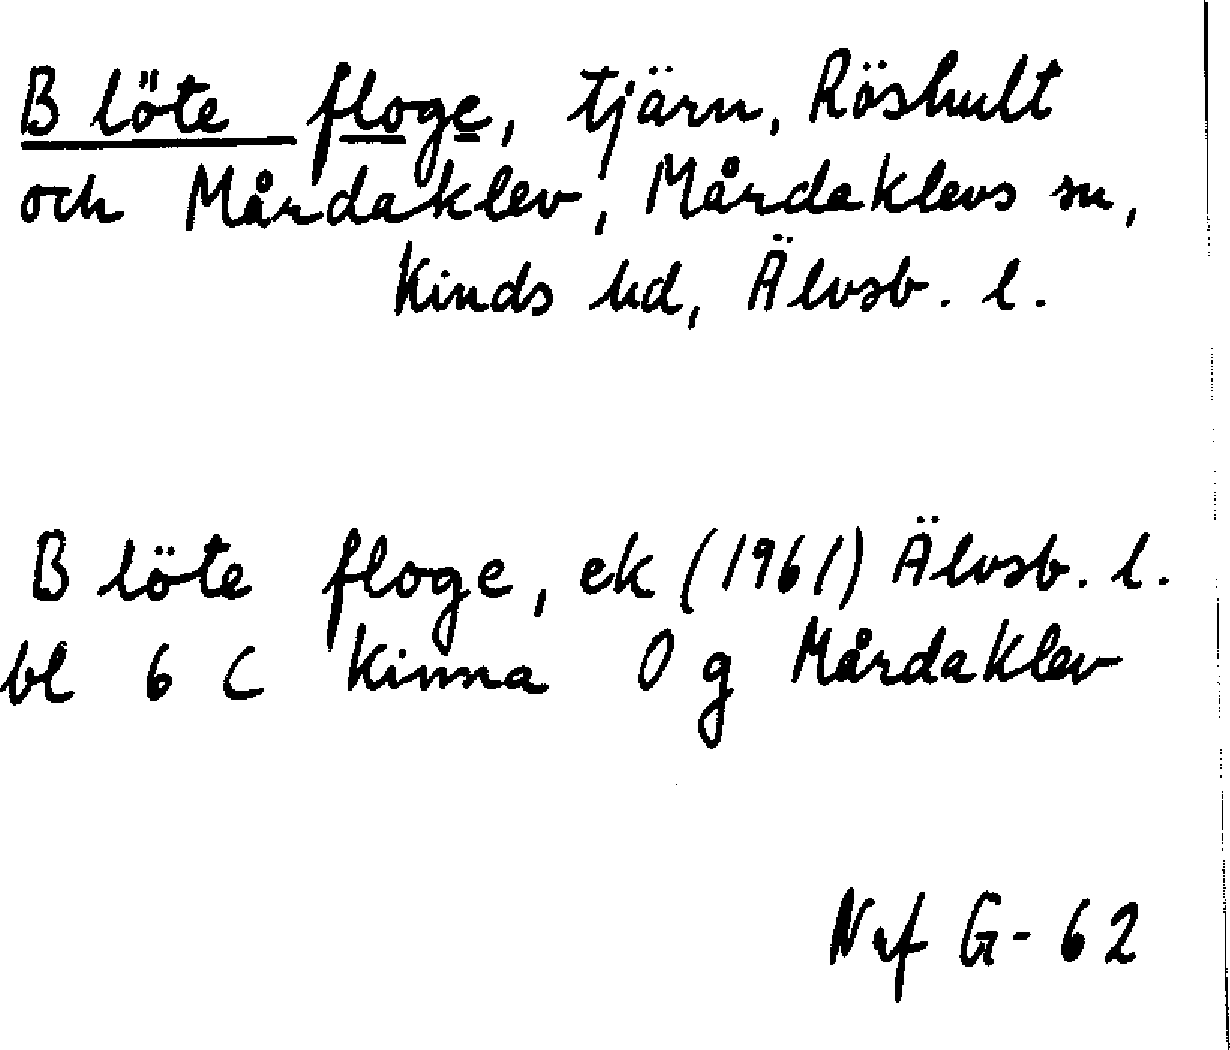 Blöte floge, tjärn, Röshult
och Mårdaklev, Mårdaklevs sn,
Kinds hd, Älvsb. l.
Blöte floge, ek (1961) Älvsb. l.
bl 6 C Kinna 0 g Mårdaklev
Nrf G-62